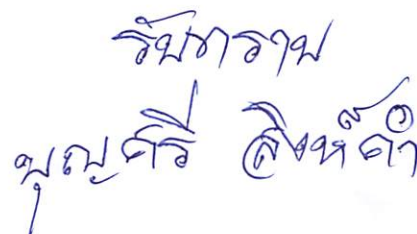 รับทราบ
บุญศรี สิงห์คำ